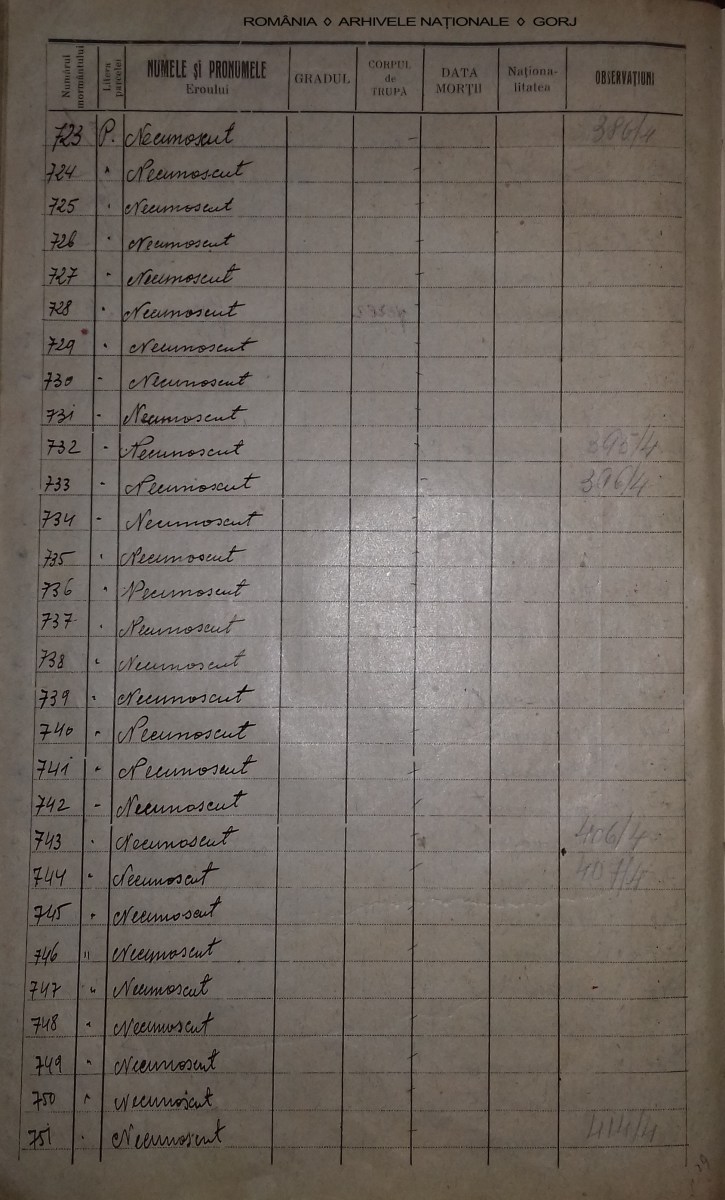 ROMÂNIA ◊ ARHIVELE NAȚIONALE ◊ GORJ
Numărul mormântului Litera parcelei NUMELE și PRONUMELE Eroului GRADUL CORPUL de TRUPĂ DATA MORȚII Naționalitatea OBSERVAȚIUNI
723 P. Necunoscut 386/4
724 " Necunoscut
725 " Necunoscut
726 " Necunoscut
727 " Necunoscut
728 " Necunoscut
729 " Necunoscut
730 " Necunoscut
731 " Necunoscut
732 " Necunoscut 395/4
733 " Necunoscut 396/4
734 " Necunoscut
735 " Necunoscut
736 " Necunoscut
737 " Necunoscut
738 " Necunoscut
739 " Necunoscut
740 " Necunoscut
741 " Necunoscut
742 " Necunoscut
743 " Necunoscut 406/4
744 " Necunoscut 407/4
745 " Necunoscut
746 " Necunoscut
747 " Necunoscut
748 " Necunoscut
749 " Necunoscut
750 " Necunoscut
751 " Necunoscut 414/4